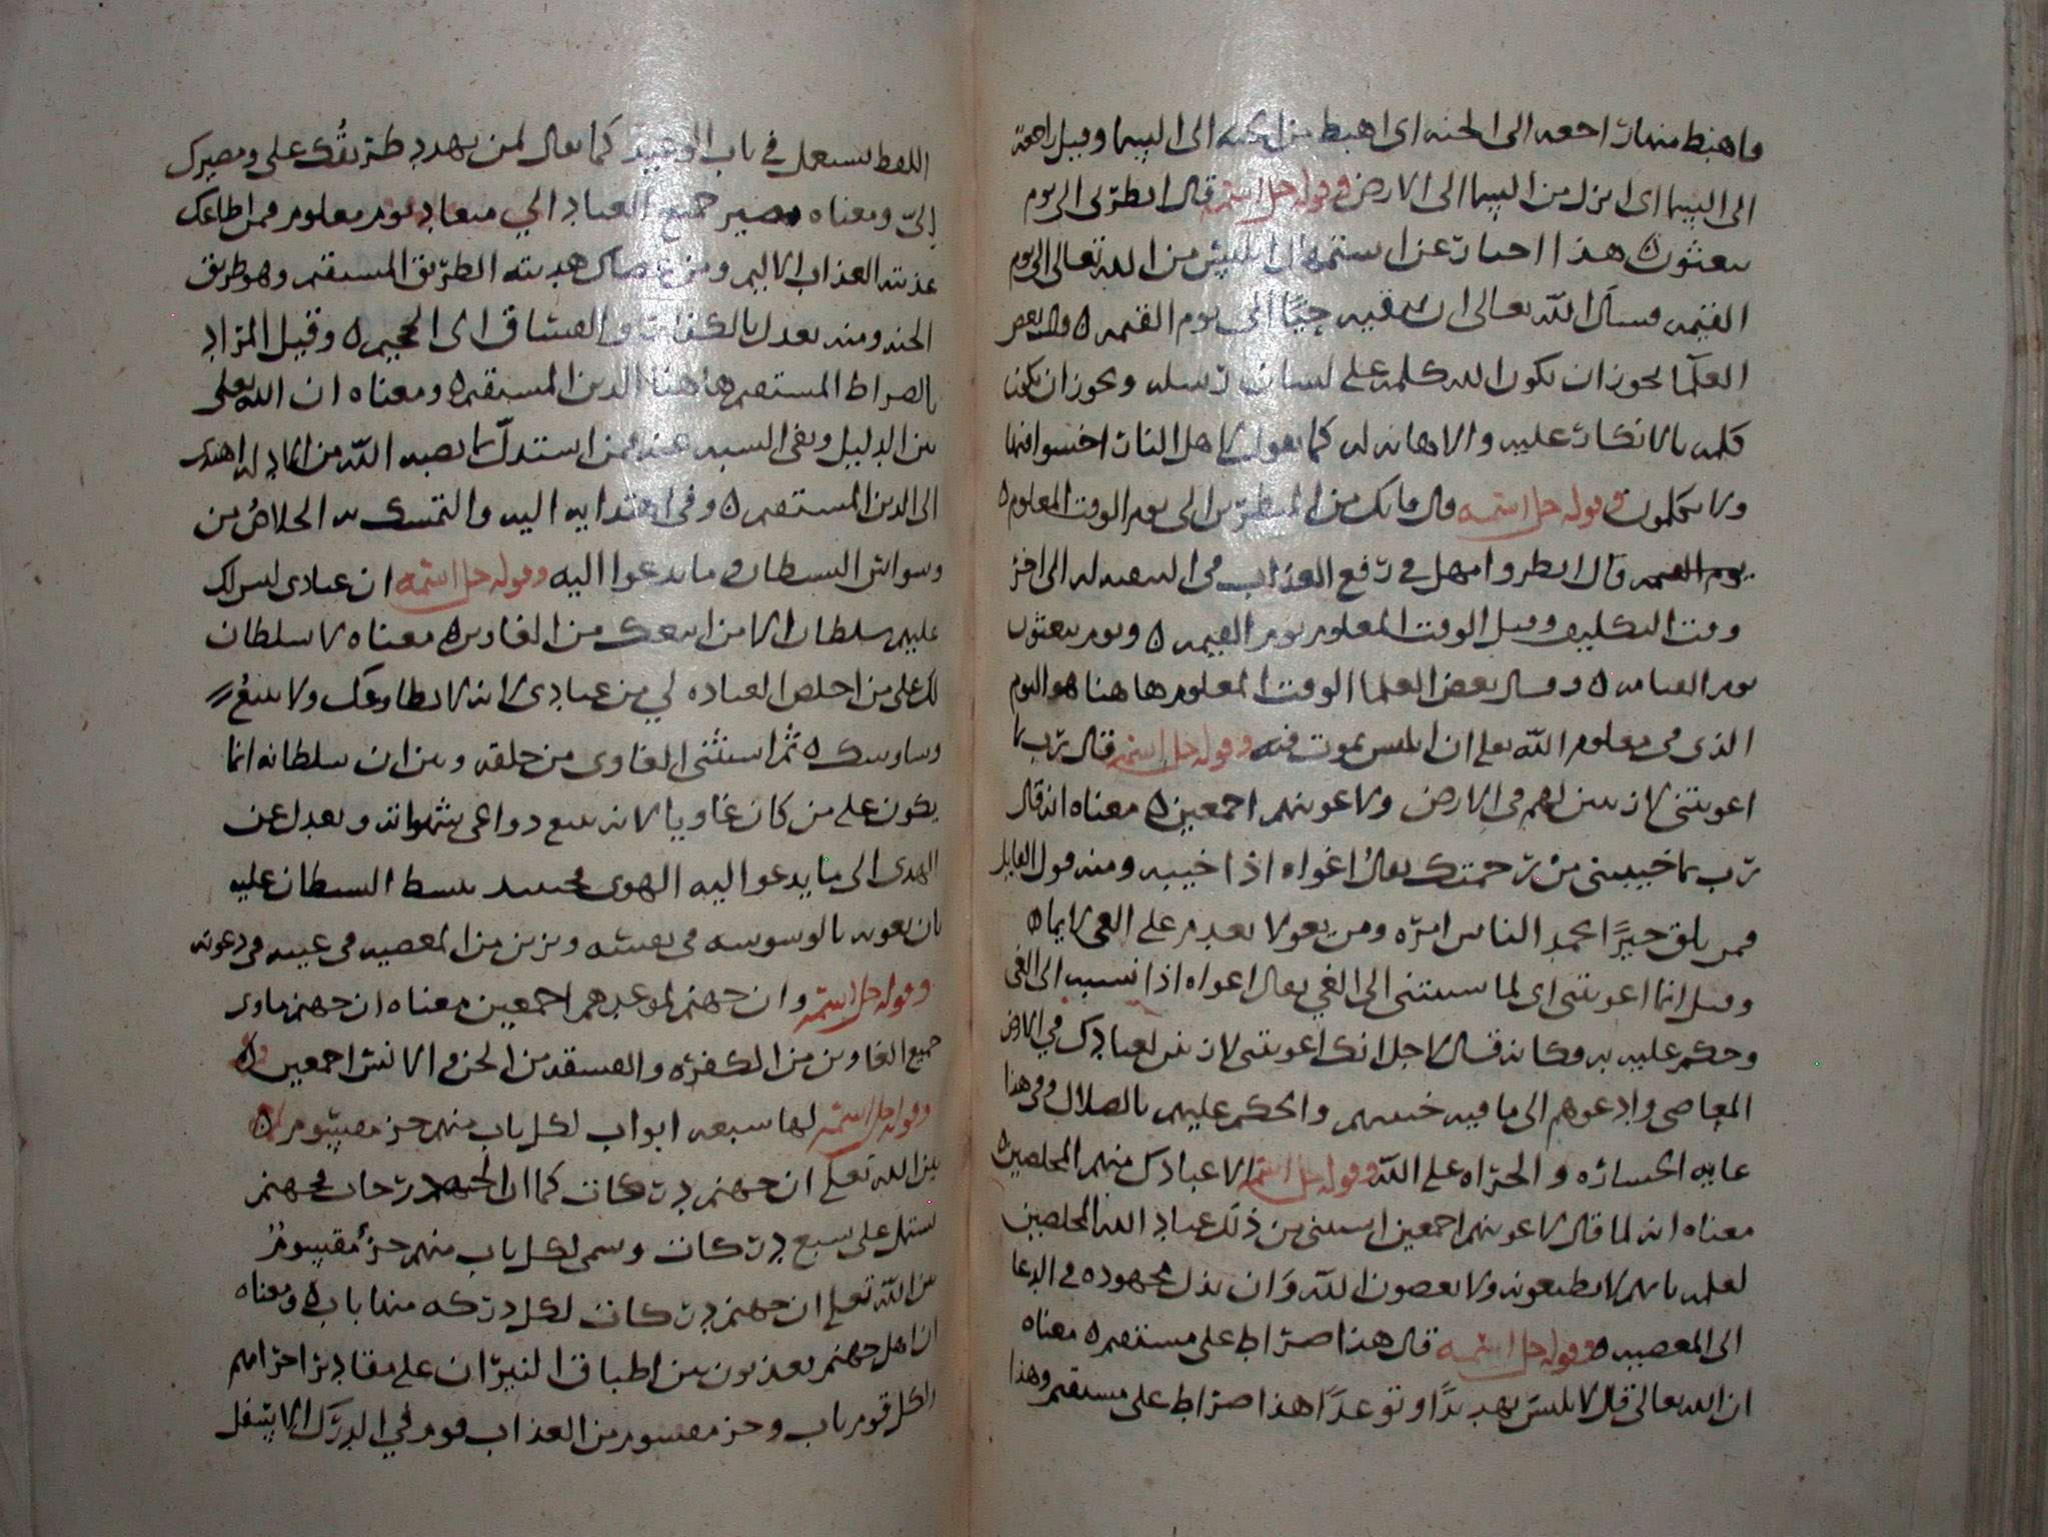 فاهبط منها راجعه الى الجنه اى اهبط من الجنه الى السما وقيل راجعة
الى السما اى انزل من السما الى الارض وقوله جل اسمه قال انظرنى الى يوم
يبعثون ه هذا اخبار عن استمهال ابليس من الله تعالى الى يوم
القيمه فسأل الله تعالى ان يبقيه حيًا الى يوم القيمه ه وقال بعض
العلما يجوز ان يكون الله كلمه على لسان رسله ويجوز ان يكون
كلمه بالانكار عليه والاهانه له كما يقول لاهل النار اخسوا فيها
ولا تكلمون وقوله جل اسمه قال فانك من المنظرين الى يوم الوقت المعلوم ه
يوم القيمه قال انظر وامهل فى رفع العذاب فى الى اخر
وقت التكليف وقيل الوقت المعلوم يوم القيمه ه ويوم يبعثون
يوم القيامه ه وقال بعض العلما الوقت المعلوم هاهنا هو اليوم
الذى فى معلوم الله تعلى ان ابليس يموت فيه وقوله جل اسمه قال رب بما
اغويتنى لازينن لهم فى الارض ولاغوينهم اجمعين ه معناه انه قال
رب بما خيبتنى من رحمتك يقال اغواه اذا خيبه ومنه قول القايل
فمن يلق خيرًا يحمد الناس امره ومن يغو لا يعدم على الغى لايما ه
وقيل انما اغويتنى اى لما نسبتنى الى الغي يقال اغواه اذا نسبه الى الغى
وحكم عليه به فكانه قال لاجل انك اغويتنى لازينن لعبادك في الارض
المعاصى وادعوهم الى ما فيه خيبتهم والحكم عليهم بالضلال وفى هذا
غايه الخساره والجراه على الله وقوله جل اسمه الا عبادك منهم المخلصين ه
معناه انه لما قال لاغوينهم اجمعين استثنى من ذلك عباد الله المخلصين
لعلمه بانهم لا يطيعونه ولا يعصون الله وان بذل مجهوده فى الدعا
الى المعصيه ه وقوله جل اسمه قال هذا صراط على مستقيم ه معناه
ان الله تعالى قال لابليس تهديدًا وتوعدًا هذا صراط على مستقيم وهذا
اللفظ يستعمل في باب الوعيد كما يقال لمن يهدد طريقُك على ومصيرك
إلىّ ومعناه مصير جميع العباد الي ميعاد يوم معلوم فمن اطاعك
عذبته العذاب الاليم ومن عصاك هديته الطريق المستقيم وهو طريق
الجنه ومنه يعدل بالكفار والفساق اى الجحيم ه وقيل المراد
بالصراط المستقيم هاهنا الدين المستقيم ه ومعناه ان الله تعلى
بين الدليل ونفى الشبه عنه فمن استدل بما نصبه الله من الادله اهتدى
الى الدين المستقيم ه وفى اهتدايه اليه والتمسك به الخلاصُ من
وسواس الشيطان وما يدعوا اليه وقوله جل اسمه ان عبادى ليس لك
عليهم سلطان الا من اتبعك من الغاوين ه معناه لا سلطان
لك على من اخلص العباده لي من عبادى لانه لا يطاوعك ولا يتبع
وساوسك ه ثم استثنى الغاوى من خلقه وبين ان سلطانه انما
يكون على من كان غاويا لانه يتبع دواعى شهواته ويعدل عن
الهدى الى ما يدعوا اليه الهوى فحينيذ يتسلط الشيطان عليه
بان يغويه بالوسوسه فى نفسه ويزين من المعصيه فى عينه فى دعوته
وقوله جل اسمه وان جهنم لموعدهم اجمعين معناه ان جهنم ماوى
جميع الغاوين من الكفره والفسقه من الجن والانس اجمعين ه
وقوله جل اسمه لها سبعه ابواب لكل باب منهم جز مقسوم ه
بين الله تعلى ان جهنم دركات كما ان الجنه درجات فجهنم
تشتمل على سبع دركات وسمى لكل باب منهم جزءٌ مقسومٌ
بين الله تعلى ان جهنم دركات لكل دركه منها باب ه ومعناه
ان اهل جهنم يعذبون بين اطباق النيران على مقادير اجرامهم
لكل قوم باب وجز مقسوم من العذاب قوم في الدرك الاسفل